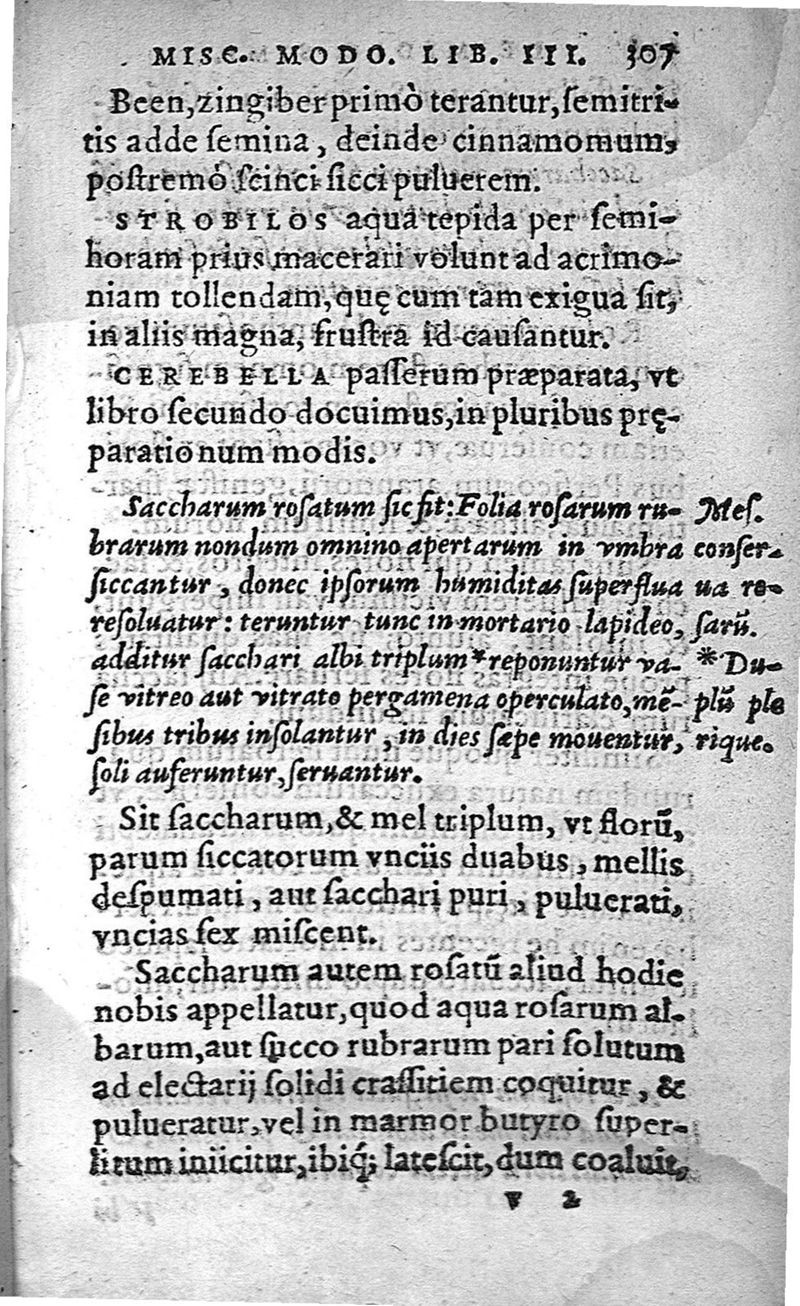 MISC. MODO. LIB. III. 307
Been, zingiber primò terantur, ſemitri-
tis adde ſemina, deinde cinnamomum,
poſtremò ſcinci ſicci puluerem.
STROBILOS aqua tepida per ſemi-
horam prius macerari volunt ad acrimo-
niam tollendam, quę cum tam exigua ſit,
in aliis magna, fruſtra id cauſantur.
CEREBELLA paſſerum præparata, vt
libro ſecundo docuimus, in pluribus prę-
parationum modis.
Saccharum roſatum ſic fit: Folia roſarum ru-
brarum nondum omnino apertarum in vmbra
ſiccantur, donec ipſorum humiditas ſuperflua
reſoluatur: teruntur tunc in mortario lapideo,
additur ſacchari albi triplum* reponuntur va-
ſe vitreo aut vitrato pergamena operculato, mē-
ſibus tribus inſolantur, in dies ſæpe mouentur,
ſoli auferuntur, ſeruantur.
Meſ.
conſer-
ua ro-
ſarū.
*Du-
plū ple
rique.
Sit ſaccharum, & mel triplum, vt florū,
parum ſiccatorum vnciis duabus, mellis
deſpumati, aut ſacchari puri, puluerati,
vncias ſex miſcent.
Saccharum autem roſatū aliud hodie
nobis appellatur, quod aqua roſarum al-
barum, aut ſucco rubrarum pari ſolutum
ad electarij ſolidi craſſitiem coquitur, &
pulueratur, vel in marmor butyro ſuper-
litum iniicitur, ibiq; lateſcit, dum coaluit,
V 2